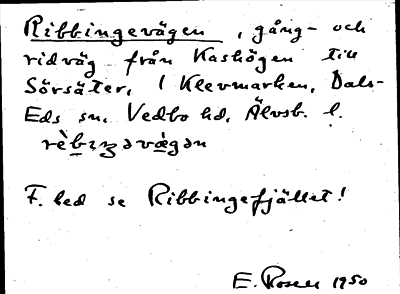 Ribbingevägen, gång- och
ridväg från Kashögen till
Sörsäter, i Klevmarken, Dals-
Eds sn, Vedbo hd, Älvsb. l.
rèbıŋəvä̀gən
F. led se Ribbingefjället!
E. Rosell 1950